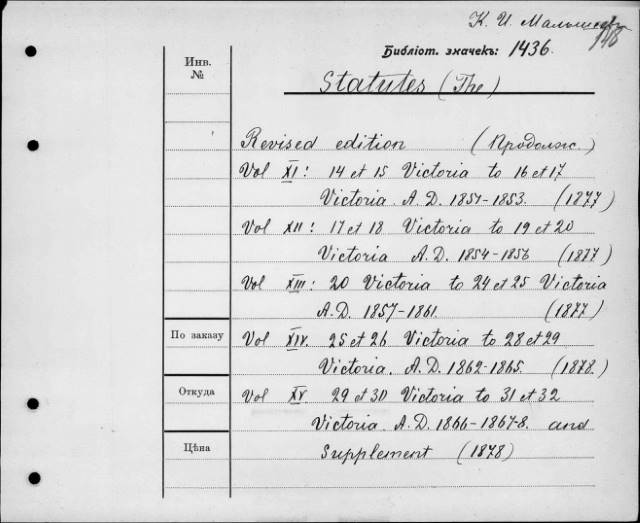 К. И. Малышев
148
Библіот. значекъ: 1436.
Инв.
№
Statutes (The)
Revised edition (Продолж.)
Vol XI: 14 et 15 Victoria to 16 et 17
Victoria. A. D. 1851-1853. (1877)
Vol XII: 17 et 18 Victoria to 19 et 20
Victoria A. D. 1854-1856 (1877)
Vol XIII: 20 Victoria to 24 et 25 Victoria
A. D. 1857-1861. (1877)
По заказу
Vol XIV. 25 et 26 Victoria to 28 et 29
Victoria. A. D. 1862-1865. (1878.)
Откуда
Vol XV 29 et 30 Victoria to 31 et 32
Victoria. A. D. 1866-1867-8. and
Цѣна
Supplement (1878)